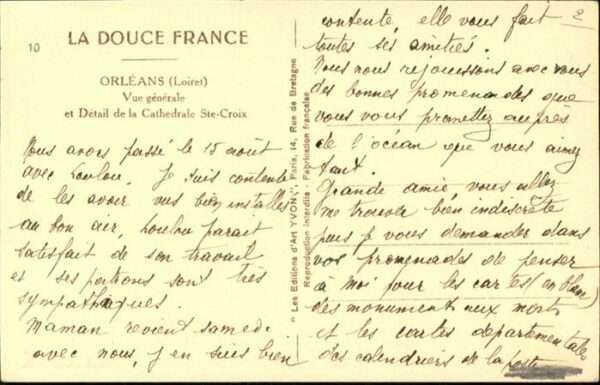 10
LA DOUCE FRANCE
ORLÉANS (Loiret)
Vue générale
et Détail de la Cathedrale Ste-Croix
Nous avons passé le 15 août
avec Loulou. Je suis contente
de les avoir vus bien installés
au bon air, Loulou parait
satisfait de son travail
et ses patrons sont très
sympathiques.
Maman revient samedi
avec nous, j'en suis bien
" Les Editions d'Art YVON ", Paris, 14, Rue de Bretagne
Reproduction Interdite - Fabrication française
2
contente, elle vous fait
toutes ses amitiés.
Nous nous rejouissons avec vous
des bonnes promenades que
vous vous promettez auprès
de l'océan que vous aimez
tant.
Grande amie vous allez
me trouver bien indiscrète
puis-je vous demander dans
vos promenades de penser
à moi pour les cartes (en blanc)
des monuments aux morts
et les cartes departementales
des calendriers de la poste